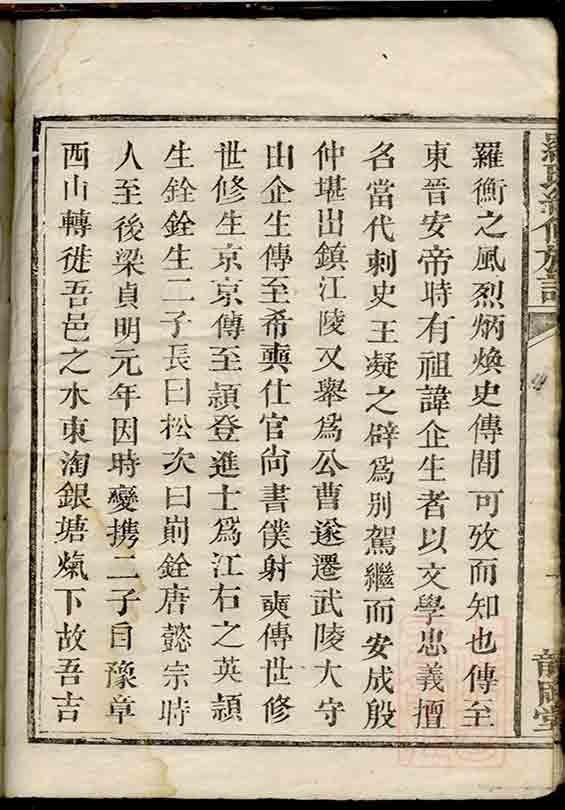 羅衡之風烈炳煥史傳間可攷而知也傳至
東晉安帝時有祖諱企生者以文學忠義擅
名當代刺史王凝之辟爲別駕繼而安成殷
仲堪出鎮江陵又舉爲公曹遂遷武陵大守
由企生傳至希奭仕官尚書僕射奭傳世修
世修生京京傳至頴登進士爲江右之英頴
生銓銓生二子長曰松次曰崱銓唐懿宗時
人至後梁貞明元年因時變携二子自豫章
西山轉徙吾邑之水東淘銀塘㷀下故吾吉